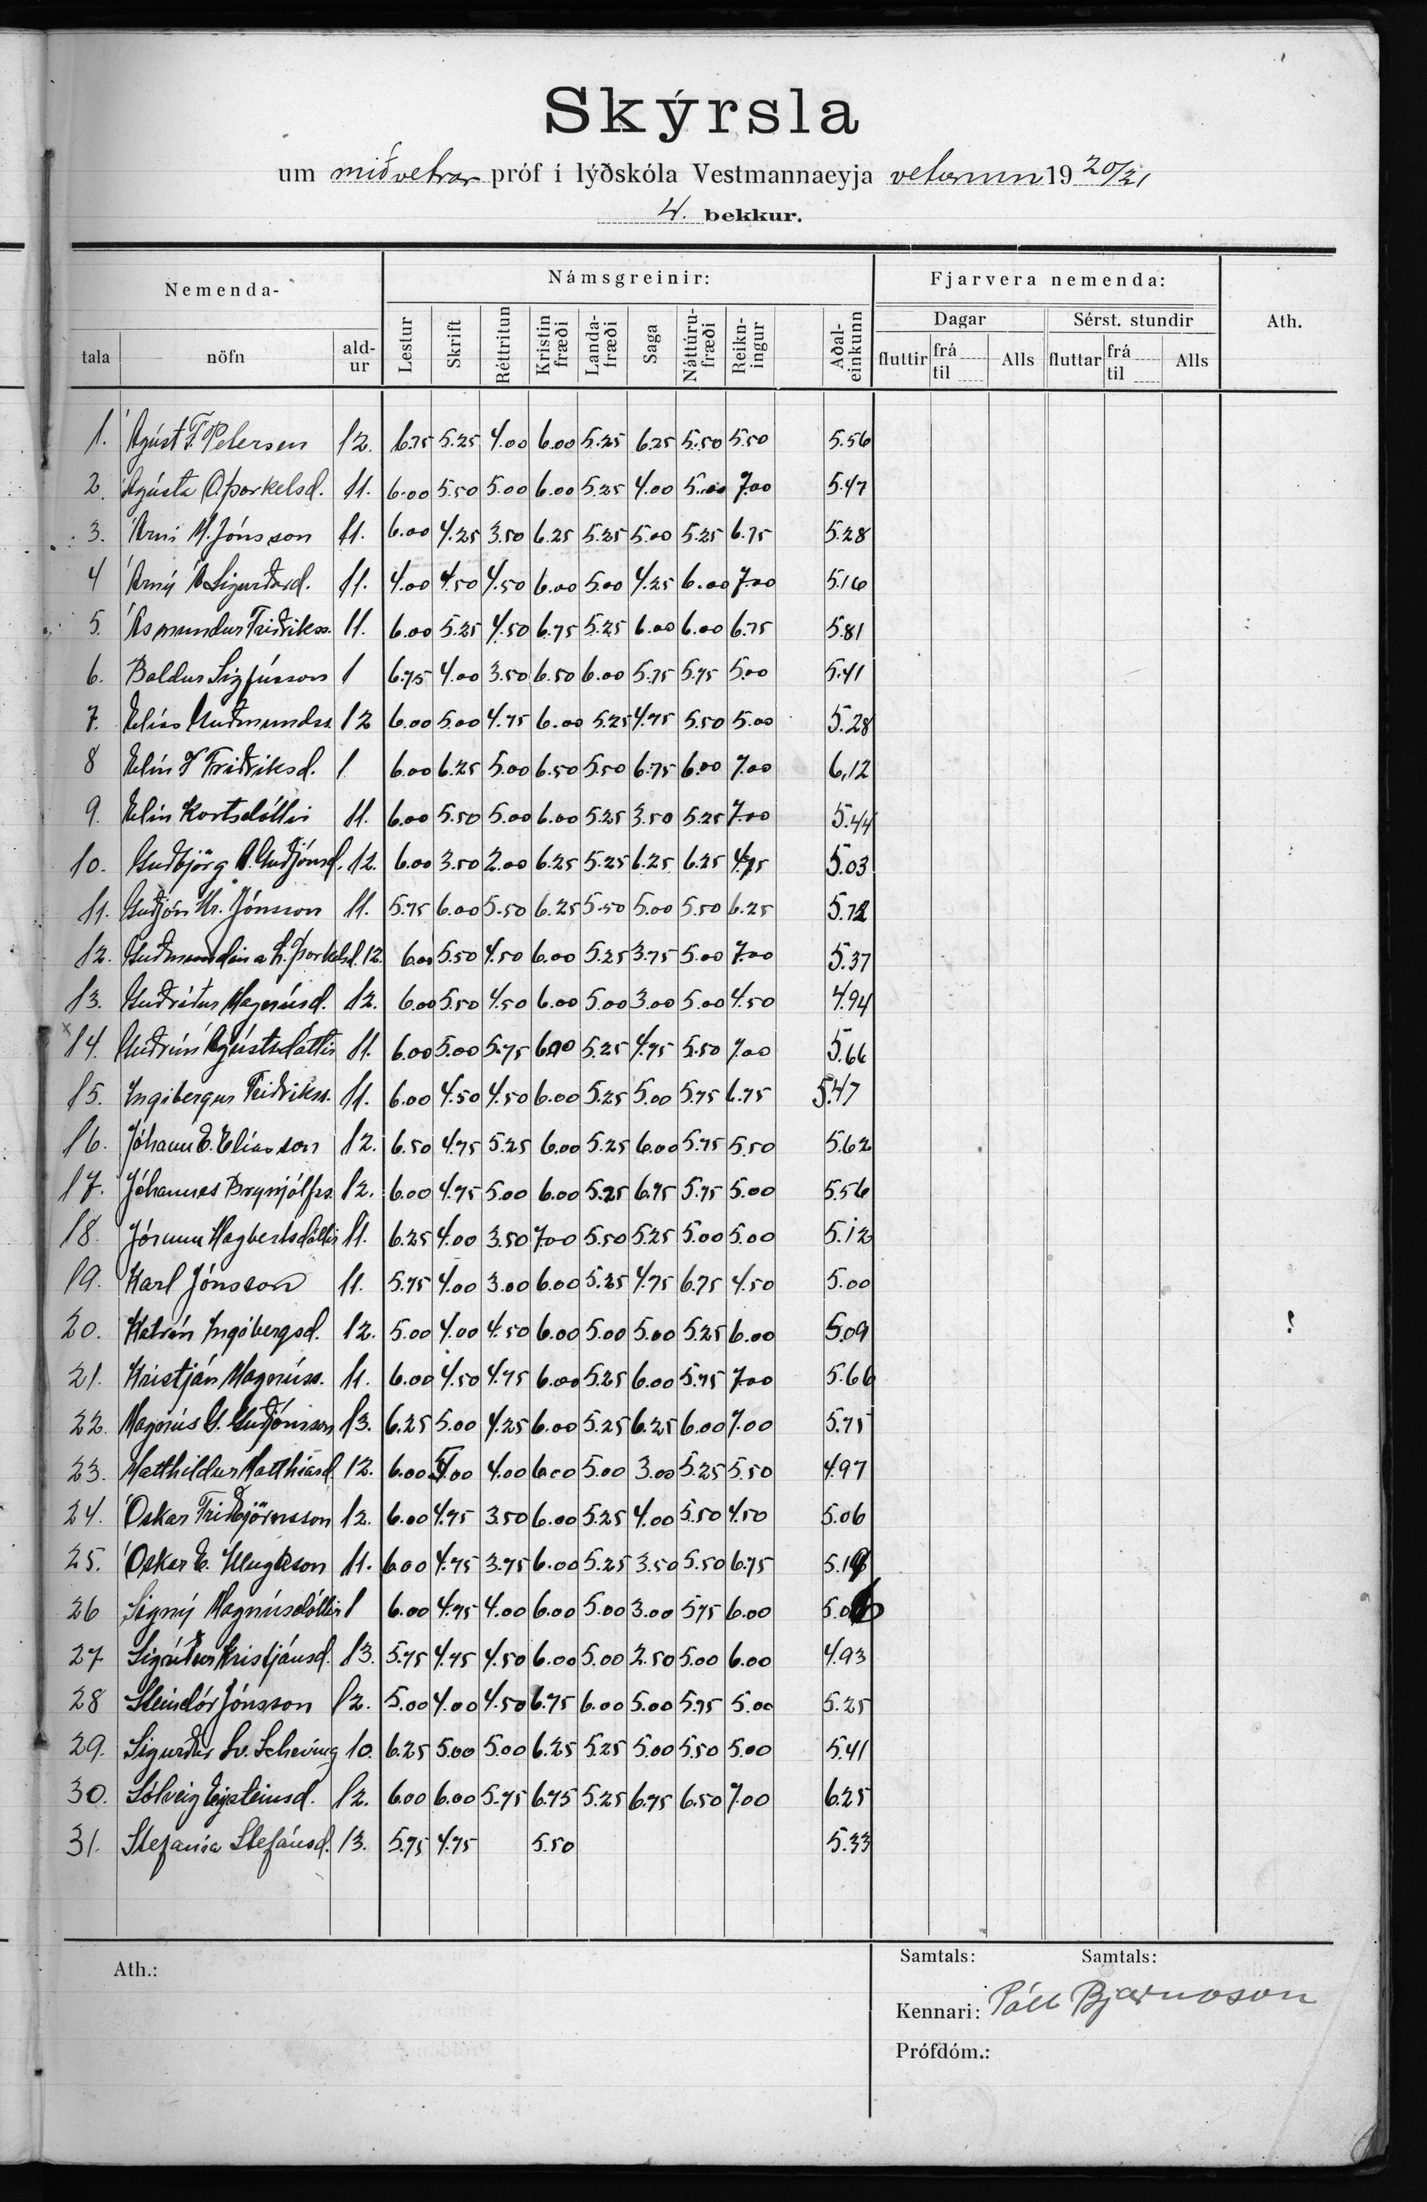 Skýrsla
um miðvetrar próf í lýðskóla Vestmannaeyja veturinn 1920/21
4. bekkur.
Nemenda- Námsgreinir: Fjarvera nemenda: Ath.
Dagar Sérst. stundir
tala nöfn aldur Lestur Skrift Réttritun Kristinfræði Landafræði Saga Náttúrufræði Reikningur Aðaleinkunn fluttir frá til Alls fluttar frá til Alls
1. Ágúst F. Petersen 12. 6.75 5.25 4.00 6.00 5.25 6.25 5.50 5.50 5.56
2. Ágústa Þorkelsd. 11. 6.00 5.50 5.00 6.00 5.25 4.00 5.00 7.00 5.47
3. Árni M. Jónsson 11. 6.00 4.25 3.50 6.25 5.25 5.00 5.25 6.75 5.28
4 Árný Á Sigurðard. 11. 4.00 4.50 4.50 6.00 5.00 4.25 6.00 7.00 5.16
5. Ásmundur Friðrikss. 11. 6.00 5.25 4.50 6.75 5.25 6.00 6.00 6.75 5.81
6. Baldur Sigfússon 1 6.75 4.00 3.50 6.50 6.00 5.75 5.75 5.00 5.41
7. Elías Guðmundss. 12 6.00 5.00 4.75 6.00 5.25 4.75 5.50 5.00 5.28
8 Elín J Friðriksd. 1 6.00 6.25 5.00 6.50 5.50 6.75 6.00 7.00 6,12
9. Elín Kortsdóttir 11. 6.00 5.50 5.00 6.00 5.25 3.50 5.25 7.00 5.44
10. Guðbjörg Á. Guðjónsd. 12. 6.00 3.50 2.00 6.25 5.25 6.25 6.25 4.75 5.03
11. Guðjón Kr. Jónsson 11. 5.75 6.00 5.50 6.25 5.50 5.00 5.50 6.25 5.72
12. Guðmundína L. Þorkelsd. 12. 6.00 5.50 4.50 6.00 5.25 3.75 5.00 7.00 5.37
13. Guðríður Magnúsd. 12. 6.00 5.50 4.50 6.00 5.00 3.00 5.00 4.50 4.94
x 14. Guðrún Ágústsdóttir 11. 6.00 5.00 5.75 6.00 5.25 4.75 5.50 7.00 5.66
15. Ingibergur Friðrikss. 11. 6.00 4.50 4.50 6.00 5.25 5.00 5.75 6.75 5.47
16. Jóhann E. Elíasson 12. 6.50 4.75 5.25 6.00 5.25 6.00 5.75 5.50 5.62
17. Jóhannes Brynjólfss. 12. 6.00 4.75 5.00 6.00 5.25 6.75 5.75 5.00 5.56
18. Jórunn Magbertsdóttir 11. 6.25 4.00 3.50 7.00 5.50 5.25 5.00 5.00 5.12
19. Karl Jónsson 11. 5.75 4.00 3.00 6.00 5.25 4.75 6.75 4.50 5.00
20. Katrín Ingibergsd. 12. 5.00 4.00 4.50 6.00 5.00 5.00 5.25 6.00 5.09
21. Kristján Magnúss. 11. 6.00 4.50 4.75 6.00 5.25 6.00 5.75 7.00 5.66
22. Magnús G. Guðjónsson 13. 6.25 5.00 4.25 6.00 5.25 6.25 6.00 7.00 5.75
23. Matthildur Matthíasd. 12. 6.00 5.00 4.00 6.00 5.00 3.00 5.25 5.50 4.97
24. Óskar Friðbjörnsson 12. 6.00 4.75 3.50 6.00 5.25 4.00 5.50 4.50 5.06
25. Óskar E. Illugason 11. 6.00 4.75 3.75 6.00 5.25 3.50 5.50 6.75
26 Signý Magnúsdóttir 1 6.00 4.75 4.00 6.00 5.00 3.00 5.75 6.00
27 Sigríður Kristjánsd. 13. 5.75 4.75 4.50 6.00 5.00 2.50 5.00 6.00 4.93
28 Steindór Jónsson 12. 5.00 4.00 4.50 6.75 6.00 5.00 5.75 5.00 5.25
29. Sigurður Sv. Scheving 10. 6.25 5.00 5.00 6.25 5.25 5.00 5.50 5.00 5.41
30. Sólveig Eysteinsd. 12. 6.00 6.00 5.75 6.75 5.25 6.75 6.50 7.00 6.25
31. Stefanía Stefánsd. 13. 5.75 4.75 5.50 5.33
Samtals: Samtals:
Ath.:
Kennari: Páll Bjarnason
Prófdóm.: